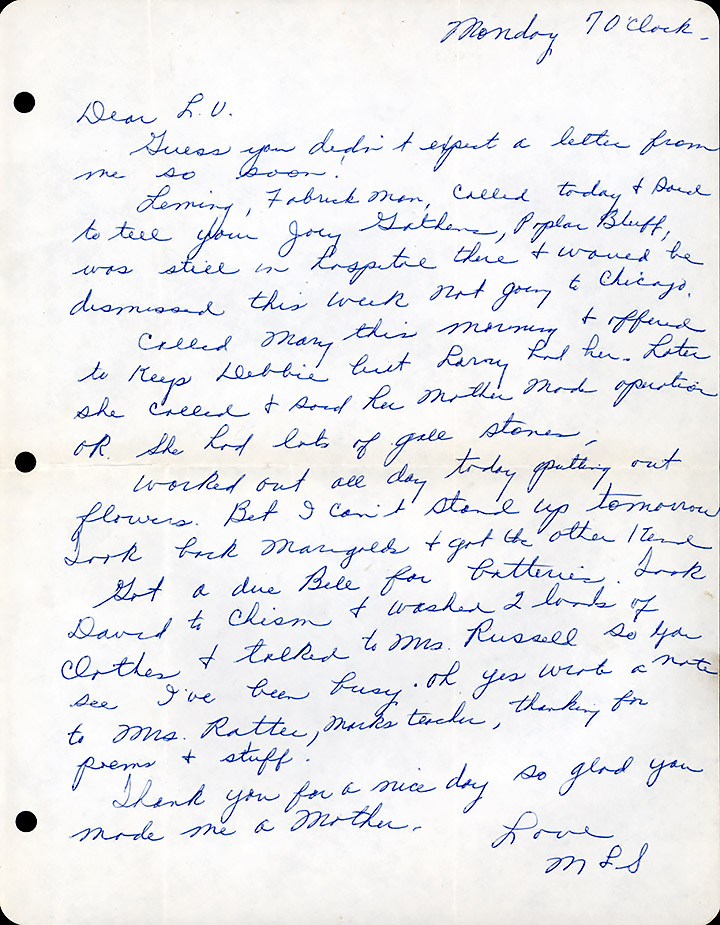 Monday 7 O'Clock -
Dear L.V.
Guess you didn't expect a letter from
me so soon!
Leming, Fabrick Man, called today & said
to tell your Joey Gathens, Poplar Bluff,
was still in hospital there & would be
dismissed this week not going to Chicago.
Called Mary this morning & offered
to Keep Debbie but Larry had her. Later
she called & said her Mother Made operation
OK. She had lots of gall stones.
Worked out all day today putting out
flowers. Bet I can't stand up tomorrow
Took back Marigolds & got the other Kind
Got a due Bill for batteries. Took
David to Chism & washed 2 loads of
Clothes & talked to Mrs. Russell so you
see I've been busy. Oh yes wrote a note
to Mrs. Ratter, Marks teacher, thanking for
poems & stuff.
Thank you for a nice day so glad you
made me a Mother.
Love
MLS